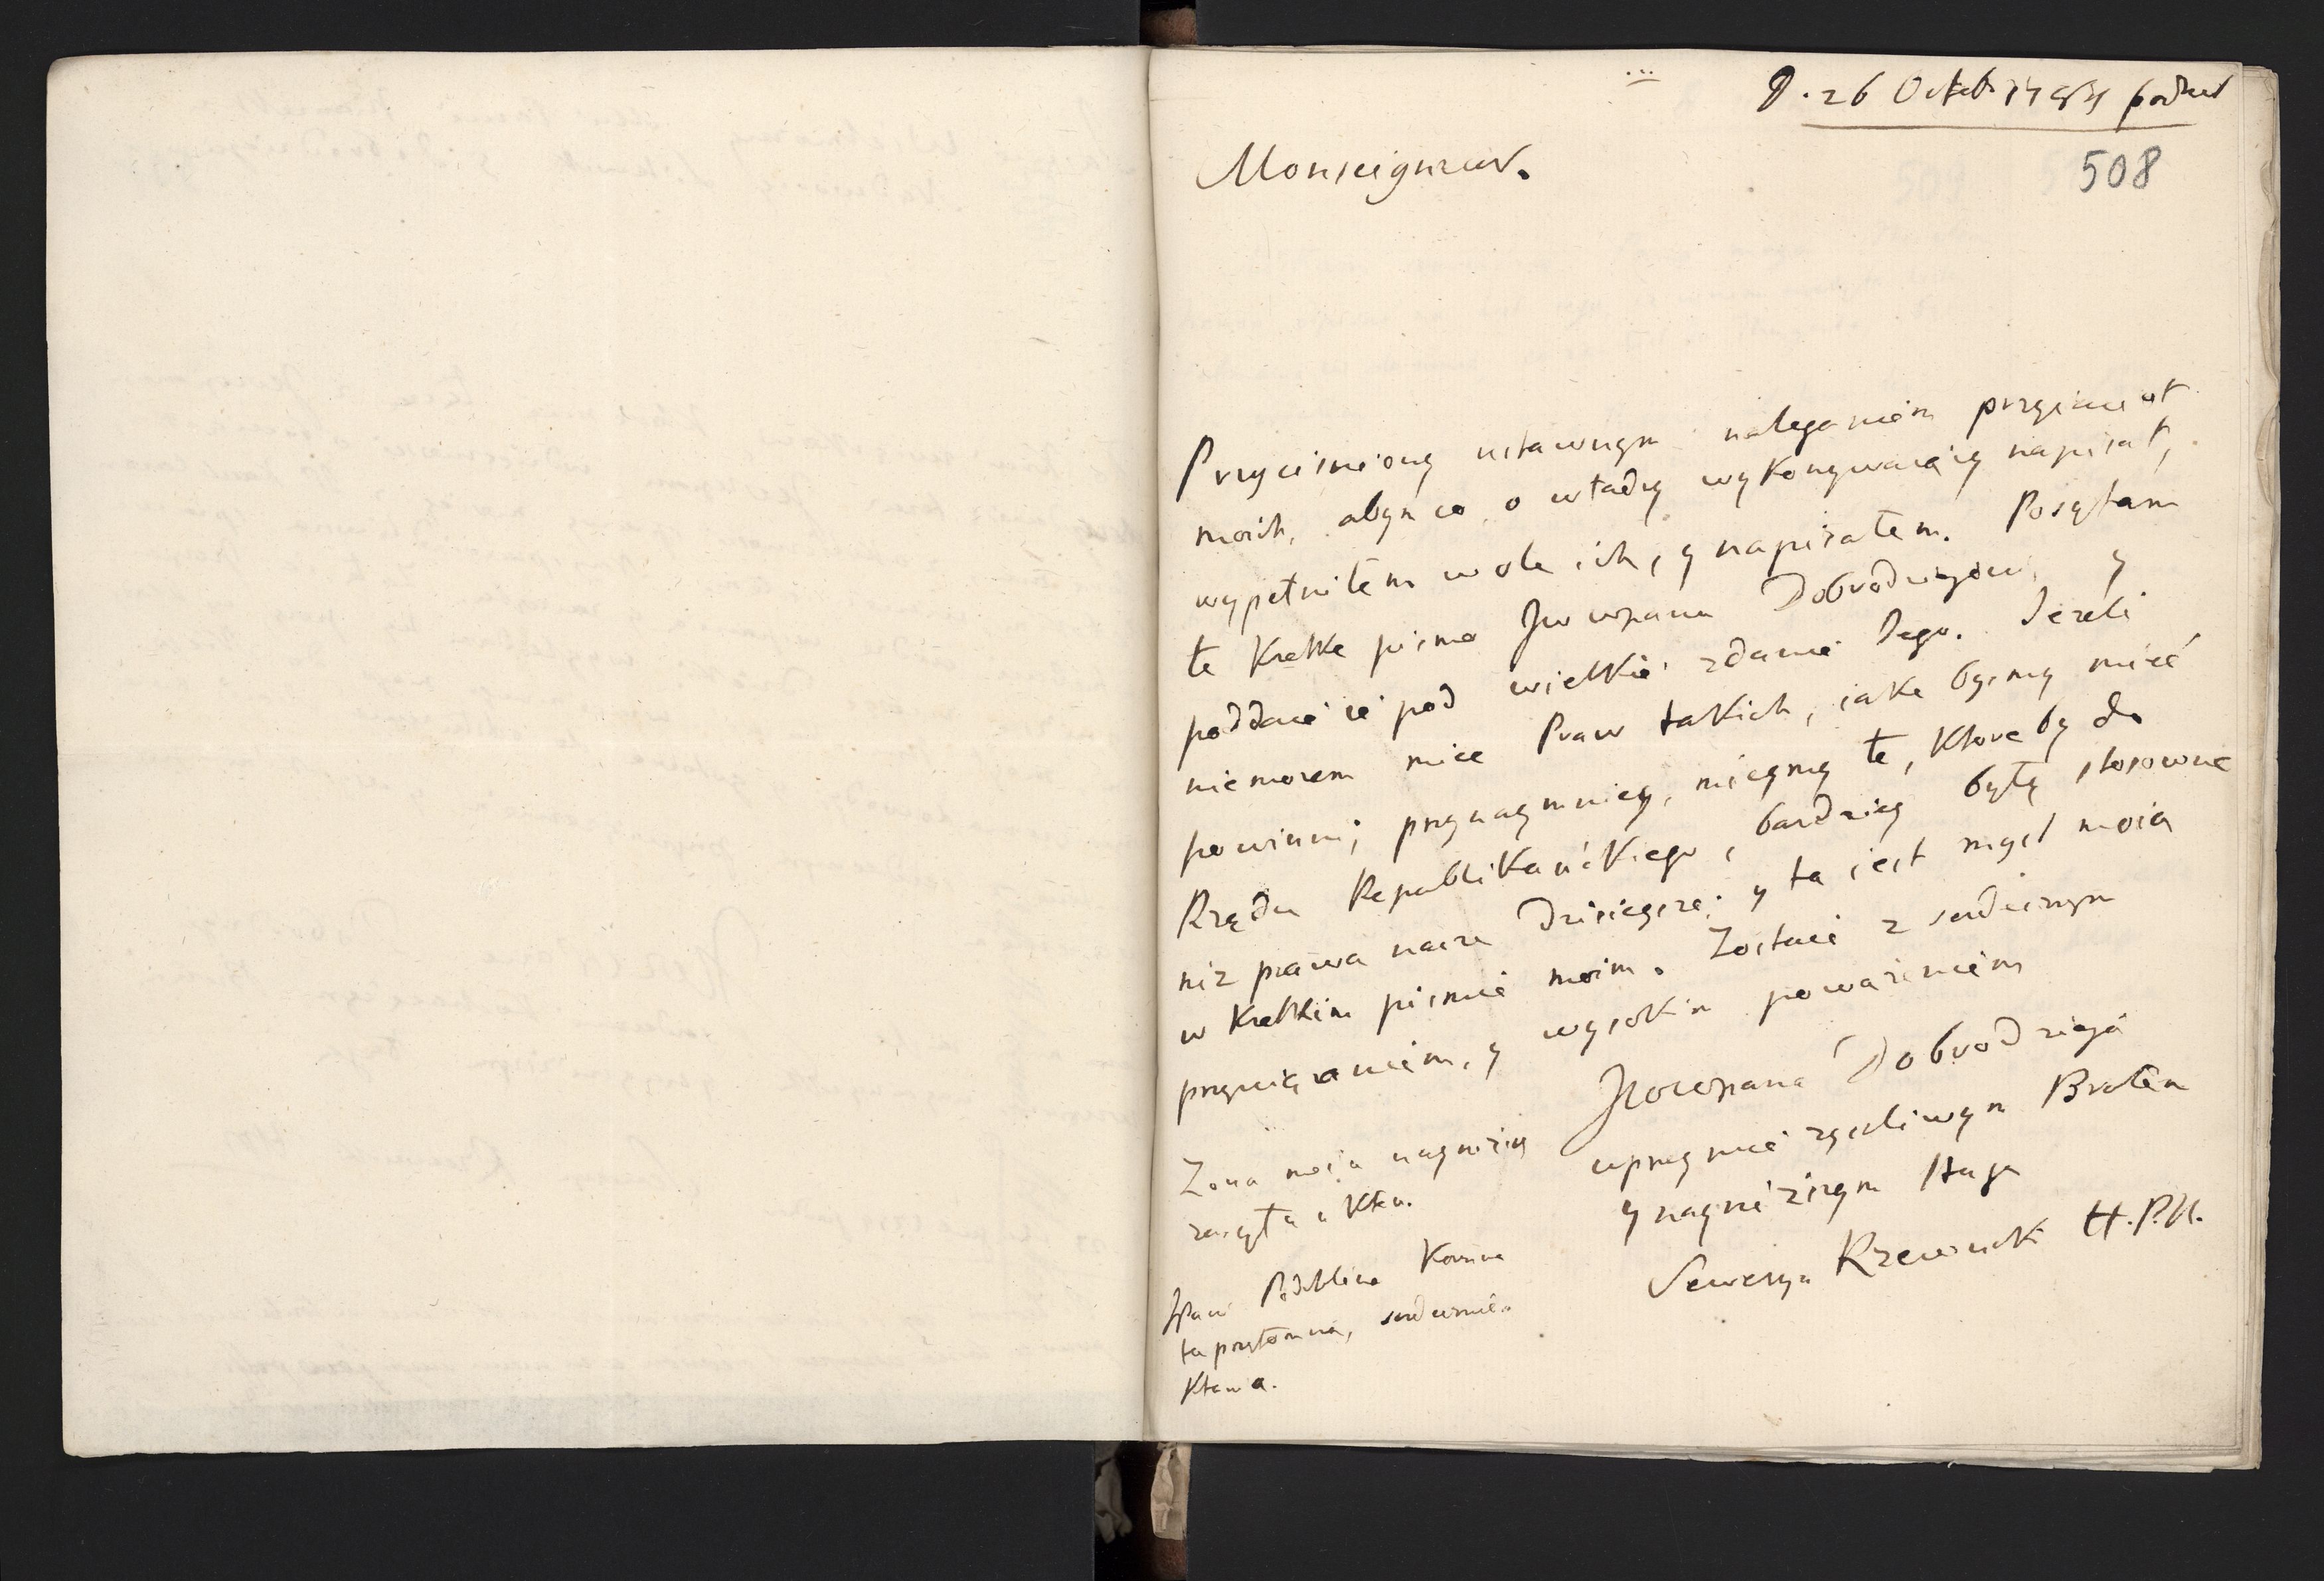 D. 26 Octob.
508
Monseigneur.
Przyciśniony ustawnym naleganiem przyiaciuł
moich, abym co o władzy wykonywaiący napisał,
wypełniłem wole ich, y napisałem. Posyłam
te Krotke pismo Jww pana Dobrodzieiowi, y
poddaię ie pod wielkie zdanie Jego. Jezeli
niemozem miec Praw takich, iake bysmy mieć
powinni, przynaymniey, mieymy te, Ktore by do
Rządu Republikańskiego, bardziey były stosowne
niz prawa nasze dzisieysze; y ta iest mysl moia
w Krotkim pismie moim. Zostaie z serdecznym
przywiązaniem, y wysokim powazeniem
Jwwpana Dobrodzieja
uprzeymie zyczliwym Bratem
y nayniższym sługą
Seweryn Rzewuski H.P.K.
Zona moia nayniżey
zasyła
Koronna
tu przytomna, serdecznie
Kłania.